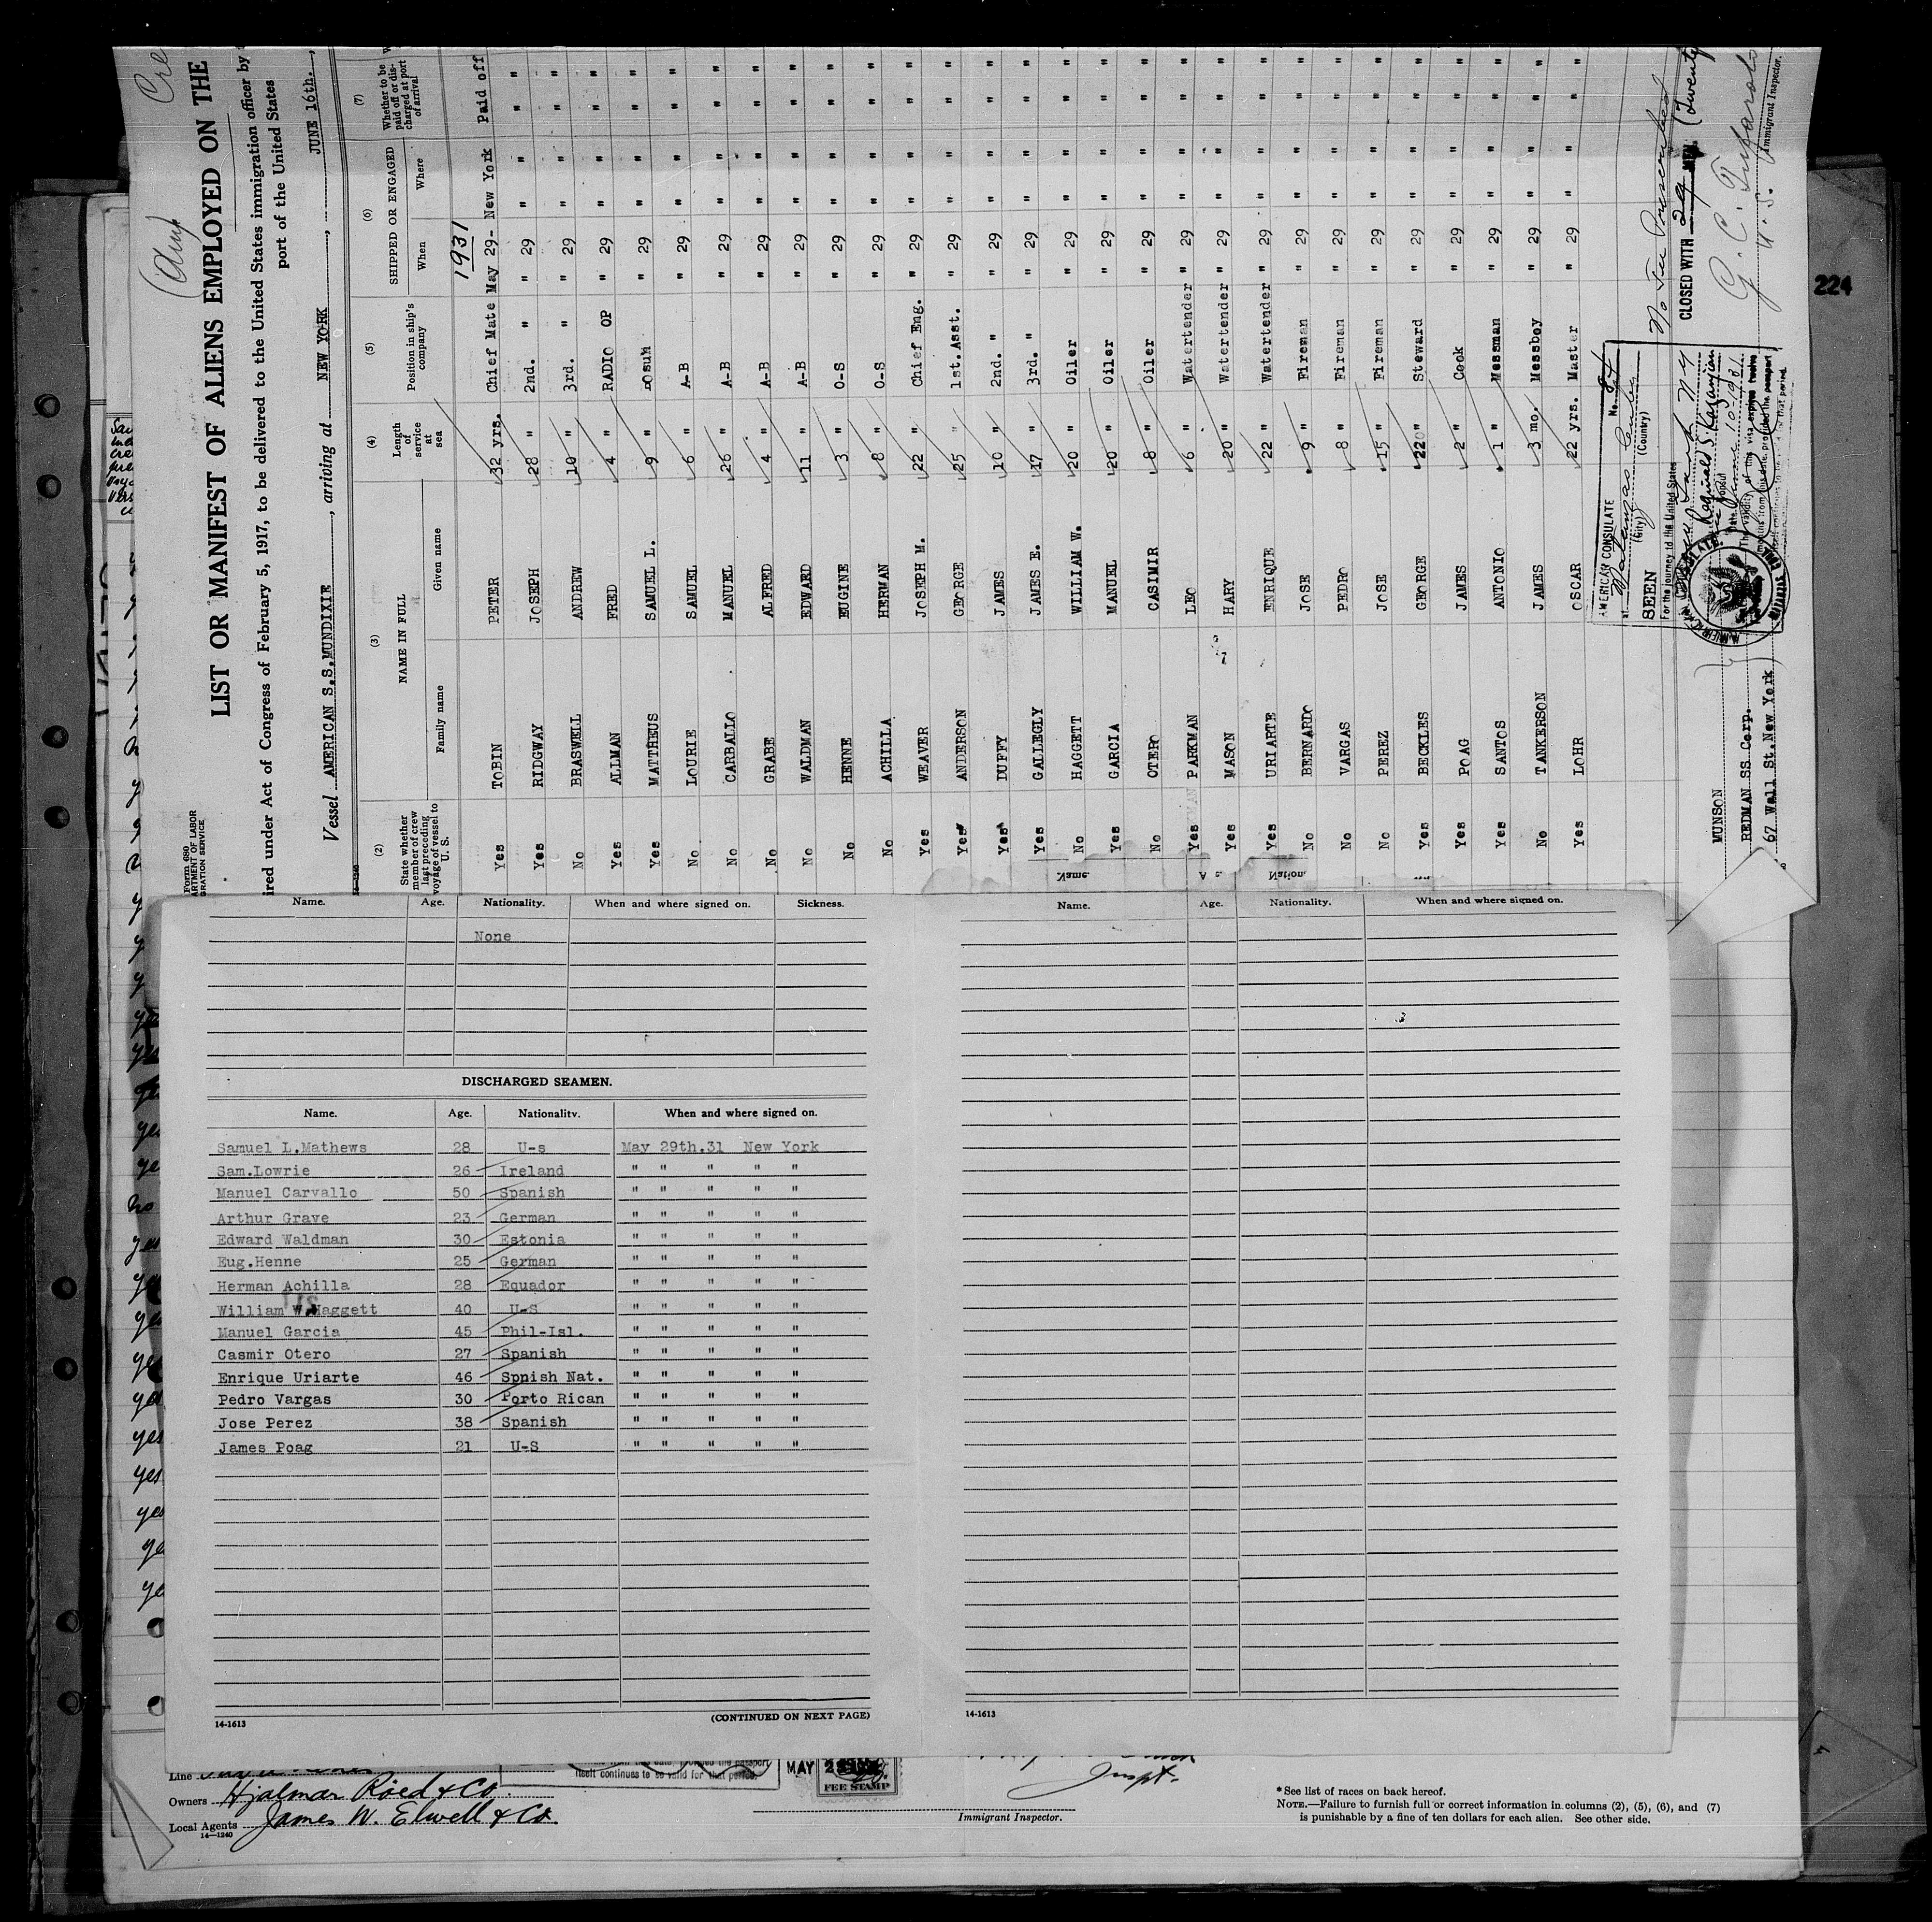 LIST OR MANIFEST OF ALIENS EMPLOYED ON THE
ired under Act of Congress of February 5, 1917, to be delivered to the United States immigration officer by
port of the United States
Vessel AMERICAN S.S.MUNDIXIE, arriving at NEW YORK, JUNE 16th.,
Form 680
ARTMENT OF LABOR
GRATION SERVICE
(2) (3) (4) (5) (6) (7)
State whether member of crew last preceding voyage of vessel to U. S.
NAME IN FULL
Family name Given name
Length of service at sea
Position in ship's company
SHIPPED OR ENGAGED
When Where
Whether to be paid off or discharged at port of arrival
1931
Yes TOBIN PETER 32 yrs. Chief Mate May 29- New York Paid off
Yes RIDGWAY JOSEPH 28 " 2nd. " " 29 " " " "
No BRASWELL ANDREW 10 " 3rd. " " 29 " " " "
Yes ALLMAN FRED 4 " RADIO OP " 29 " " " "
Yes MATTHEUS SAMUEL L. 9 " Bosun " 29 " " " "
No LOURIE SAMUEL 6 " A-B " 29 " " " "
No CARBALLO MANUEL 26 " A-B " 29 " " " "
No GRABE ALFRED 4 " A-B " 29 " " " "
No WALDMAN EDWARD 11 " A-B " 29 " " " "
No HENNE EUGINE 3 " O-S " 29 " " " "
No ACHILLA HERMAN 8 " O-S " 29 " " " "
Yes WEAVER JOSEPH M. 22 " Chief Eng. " 29 " " " "
Yes ANDERSON GEORGE 25 " 1st.Asst. " 29 " " " "
Yes DUFFY JAMES 10 " 2nd. " " 29 " " " "
Yes GALLEGLY JAMES E. 17 " 3rd. " " 29 " " " "
No HAGGETT WILLIAM W. 20 " Oiler " 29 " " " "
Yes GARCIA MANUEL 20 " Oiler " 29 " " " "
No OTERO CASIMIR 8 " Oiler " 29 " " " "
Yes PARKMAN LEO 6 " Watertender " 29 " " " "
Yes MASON HARY 20 " Watertender " 29 " " " "
Yes URIARTE ENRIQUE 22 " Watertender " 29 " " " "
No BERNARDO JOSE 9 " Fireman " 29 " " " "
No VARGAS PEDRO 8 " Fireman " 29 " " " "
No PEREZ JOSE 15 " Fireman " 29 " " " "
Yes BECKLES GEORGE 22 " Steward " 29 " " " "
Yes POAG JAMES 2 " Cook " 29 " " " "
Yes SANTOS ANTONIO 1 " Messman " 29 " " " "
No TANKERSON JAMES 3 mo. Messboy " 29 " " " "
Yes LOHR OSCAR 22 yrs. Master " 29 " " " "
AMERICAN CONSULATE
at Matanzas Cuba No. 84
(City) (Country)
SEEN
For the journey to the United States
CLOSED WITH 29 (Twenty
U. S. Immigrant Inspector.
MUNSON
REDMAN SS Corp.
67 Wall St.New York
224
Name. Age. Nationality. When and where signed on. Sickness.
None
DISCHARGED SEAMEN.
Name. Age. Nationality. When and where signed on.
Samuel L.Mathews 28 U-s May 29th.31 New York
Sam.Lowrie 26 Ireland " " " " "
Manuel Carvallo 50 Spanish " " " " "
Arthur Grave 23 German " " " " "
Edward Waldman 30 Estonia " " " " "
Eug.Henne 25 German " " " " "
Herman Achilla 28 Equador " " " " "
William W.Haggett 40 U-S " " " " "
Manuel Garcia 45 Phil-Isl. " " " " "
Casmir Otero 27 Spanish " " " " "
Enrique Uriarte 46 Spnish Nat. " " " " "
Pedro Vargas 30 Porto Rican " " " " "
Jose Perez 38 Spanish " " " " "
James Poag 21 U-S " " " " "
14-1613 (CONTINUED ON NEXT PAGE)
Name. Age. Nationality. When and where signed on.
14-1613
Line
Owners Hjalmar Röed & Co.
Local Agents James W. Elwell & Co.
14—1240
itself continues to be valid for that period.
MAY
FEE STAMP
Inspt.
Immigrant Inspector.
*See list of races on back hereof.
NOTE.—Failure to furnish full or correct information in columns (2), (5), (6), and (7)
is punishable by a fine of ten dollars for each alien. See other side.